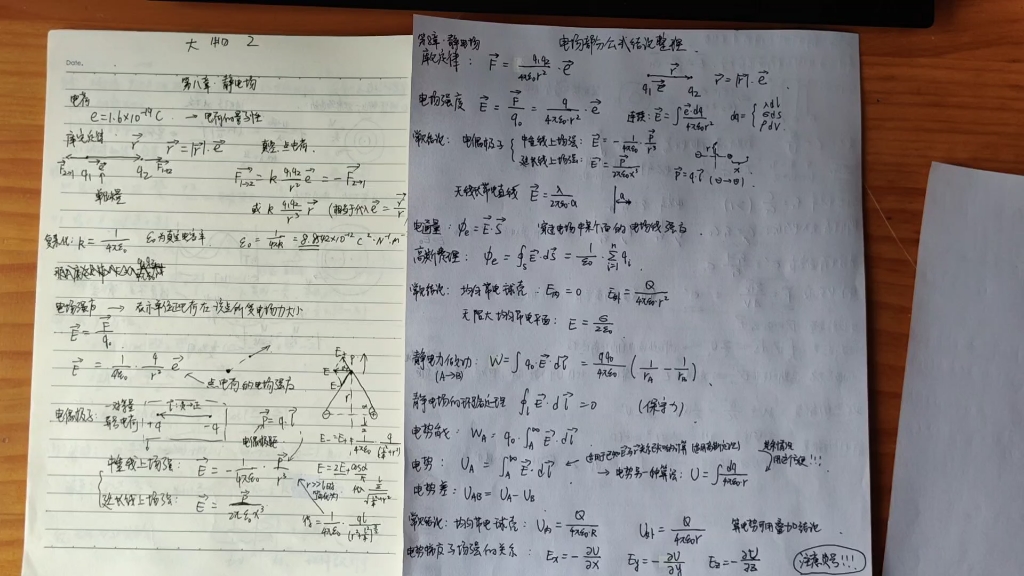 大物 2
Date.
第八章 静电场
电荷
e=1.6×10⁻¹⁹C → 电荷的量子性
库仑定律 r⃗ r⃗=|r⃗|·e⃗ 真空 点电荷
F⃗₂→₁ q₁ e⃗ q₂ F⃗₁→₂ F⃗₁→₂ = k q₁q₂/r² e⃗ = -F⃗₂→₁
单位矢量
或 k q₁q₂/r³ r⃗ (相当于代入 e⃗ = r⃗/r
k = 1/4πε₀ ε₀为真空电容率 ε₀ = 1/4πk = 8.8542×10⁻¹² C²·N⁻¹·m
电场强度 → 表示单位正电荷在该点所受电场力大小
E⃗ = F⃗/q₀
E⃗ = 1/4πε₀ · q/r² e⃗ 点电荷的电场强度
电偶极子 一对等量异号电荷 +q -q P⃗=q·l⃗
电偶极矩
中垂线上场强: E⃗ = -1/4πε₀ · P⃗/r³ r>>l
延长线上场强: E⃗ = P⃗/2πε₀x³
第八章 静电场 电场部分公式结论整理
库仑定律: F⃗ = q₁q₂/4πε₀r² · e⃗ r⃗ q₁ e⃗ q₂ r⃗=|r⃗|·e⃗
电场强度 E⃗ = F⃗/q₀ = q/4πε₀·r² · e⃗ 连续: E⃗=∫ e⃗dq/4πε₀r² dq= { λdl σds ρdV
常用结论: 电偶极子 { 中垂线上场强: E⃗ = -1/4πε₀ P⃗/r³
延长线上场强: E⃗ = P⃗/2πε₀x³ P⃗=q·l⃗ (⊖→⊕)
无线长带电直线 E⃗ = λ/2πε₀·a
电通量: φₑ = E⃗·S⃗ 穿过电场中某个面的电场线条数
高斯定理: φₑ = ∮ₛ E⃗·dS⃗ = 1/ε₀ · Σqᵢ
常用结论: 均匀带电球壳: E内 = 0 E外 = Q/4πε₀r²
无限大均匀带电平面: E = σ/2ε₀
静电力做功: W = ∫ q₀·E⃗·dl⃗ = qq₀/4πε₀ (1/r_A - 1/r_B)
(A→B)
静电场的环路定理 ∮ₗ E⃗·dl⃗ = 0 (保守力)
电势能: W_A = q₀·∫_A^∞ E⃗·dl⃗
电势: U_A = ∫_A^∞ E⃗·dl⃗ → 电势另一种算法: U=∫ dq/4πε₀r
电势差: U_AB = U_A - U_B
常用结论: 均匀带电球壳: U内 = Q/4πε₀R U外 = Q/4πε₀r
电势梯度与场强的关系: Eₓ = -∂U/∂x E_y = -∂U/∂y E_z = -∂U/∂z 注意负号!!!